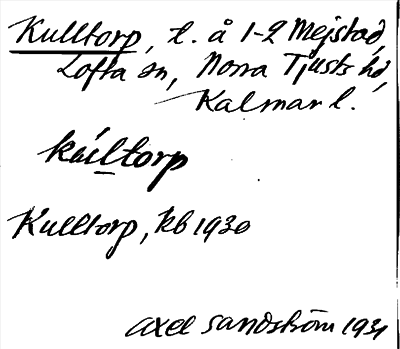 Kulltorp, t. å 1-2 Mejstad,
Lofta sn, Norra Tjusts hd,
Kalmar l.
kúltorp
Kulltorp, kb 1930
Axel Sandström 1931